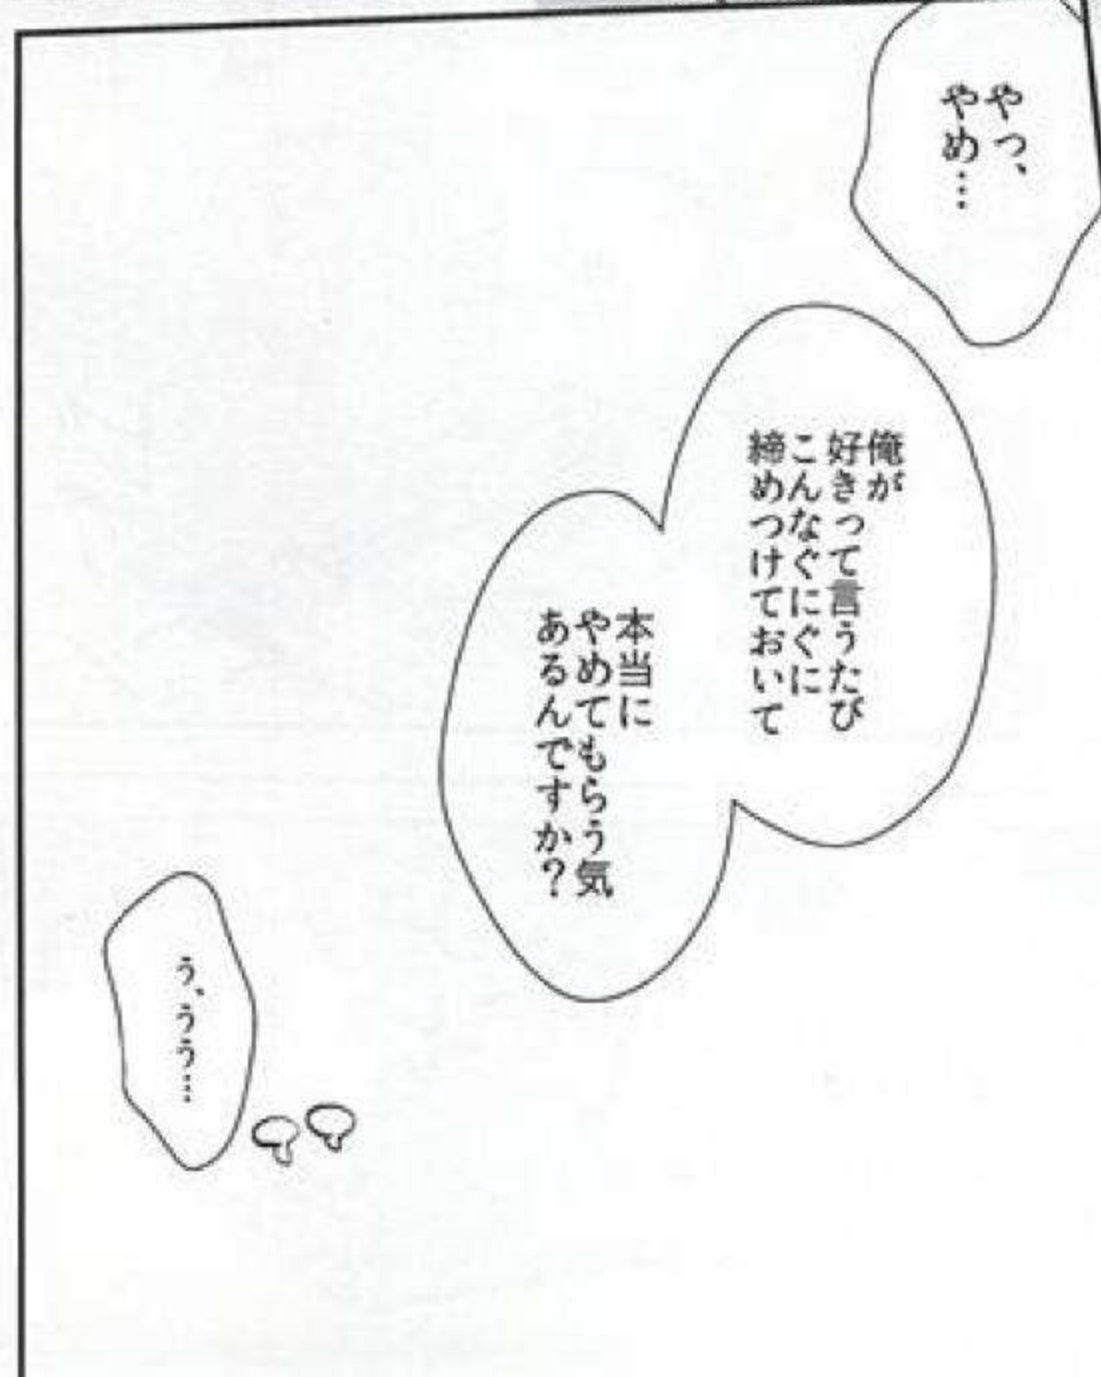 やっ、
やめ…
俺が
好きって言うたび
こんなぐにぐに
締めつけておいて
本当に
やめてもらう気
あるんですか？
う、うう…